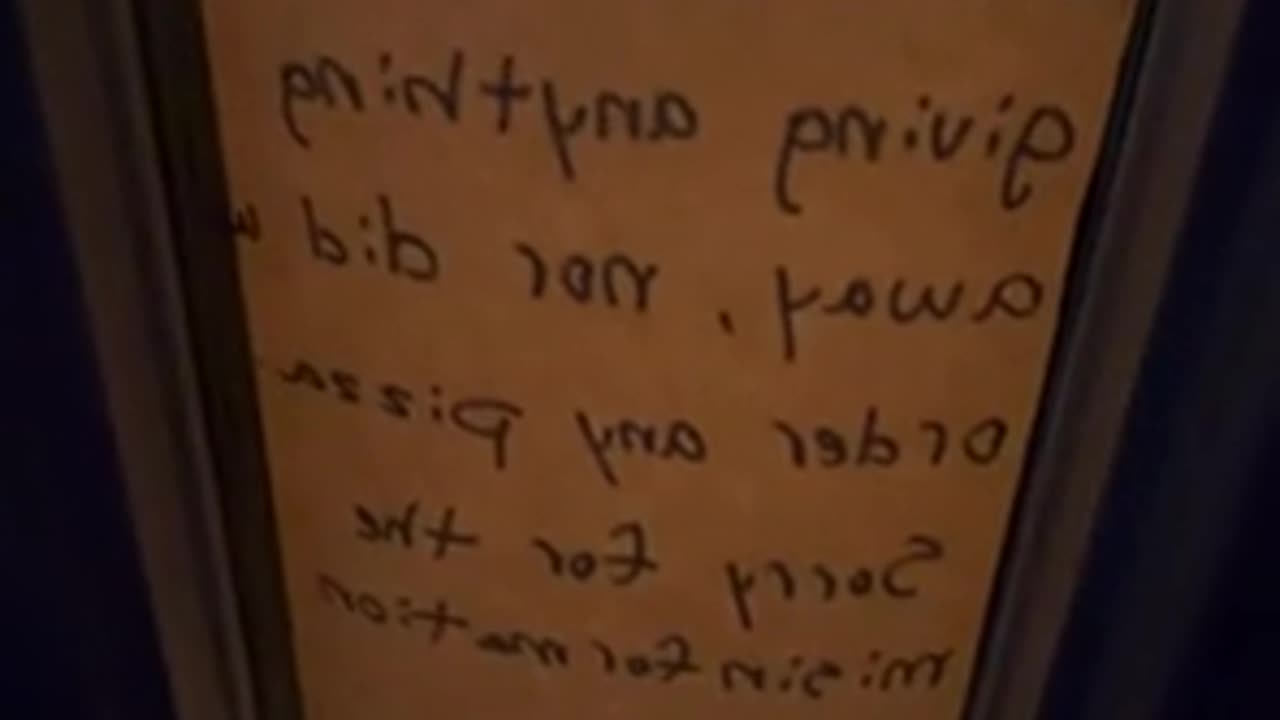 giving anything
away, nor did w
order any pizza
Sorry for the
misinformation